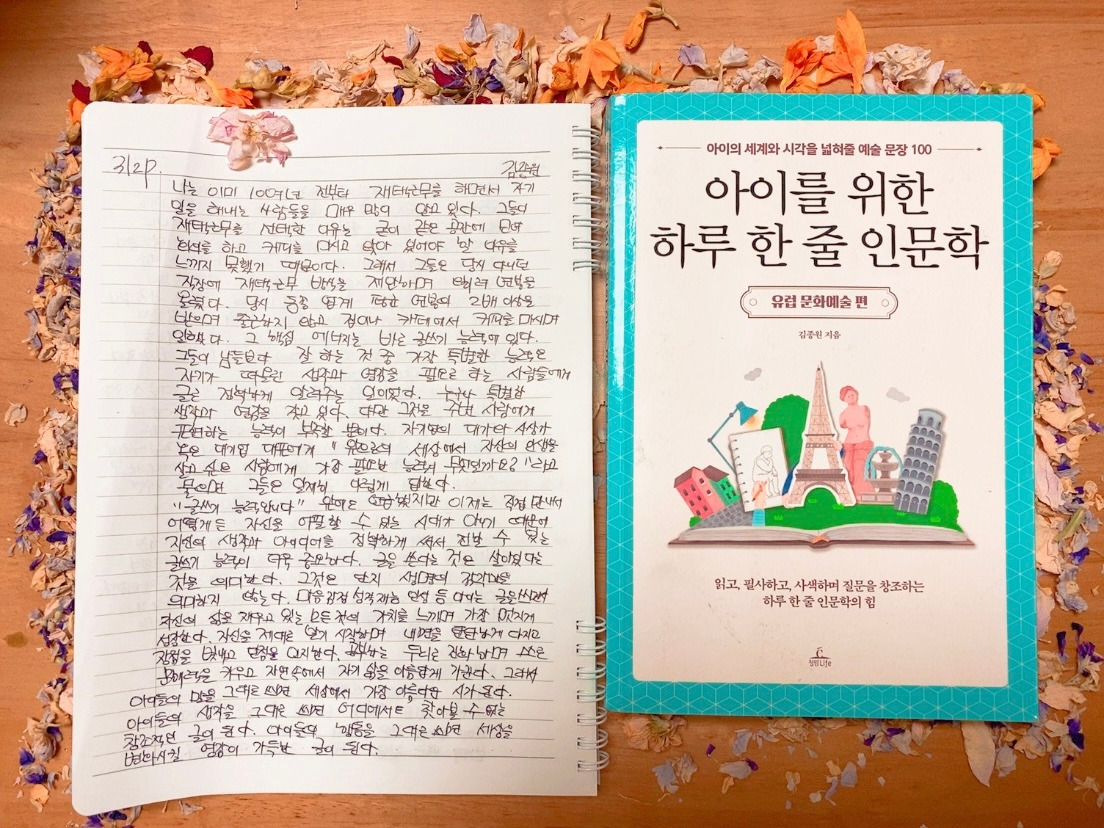 3/27.
김종원
나는 이미 100여년 전부터 재택근무를 하면서 자기
일을 해내는 사람들을 매우 많이 알고 있다. 그들이
재택근무를 선택한 이유는 굳이 같은 공간에 모여
회의를 하고 커피를 마시고 앉아 있어야 할 이유를
느끼지 못했기 때문이다. 그래서 그들은 당시 다니던
직장에 재택근무 방식을 제안하며 연봉을
올렸다. 당시 평균 연봉의 2배 이상을
받으며 출근하지 않고 집이나 카페에서 커피를 마시며
일했다. 그 핵심 에너지는 바로 글쓰기 능력에 있다.
그들이 남들보다 잘 하는 것 중 가장 특별한 능력은
자기가 떠올린 생각과 영감을 필요로 하는 사람들에게
글로 정확하게 알려주는 일이었다. 누구나 특별한
생각과 영감을 갖고 있다. 다만 그것을 주변 사람에게
표현하는 능력이 부족할 뿐이다. 자기분야 대가와
대기업 대표에게 "앞으로의 세상에서 자신의 인생을
살고 싶은 사람에게 가장 필요한 능력이 무엇일까요?"라고
물으면 그들은 일제히 이렇게 답한다.
"글쓰기 능력입니다" 이제는 직접 만나서
어떻게든 자신을 어필할 수 있는 시대가 아니기 때문에
자신의 생각과 아이디어를 정확하게 써서 전할 수 있는
글쓰기 능력이 더욱 중요하다. 글을 쓴다는 것은 살아있다는
것을 의미한다. 그것은 단지 생명의
의미하지 않는다. 마음 감정 성적 재능 인성 등 아이는 글을 쓰면서
자신의 삶을 채우고 있는 모든 것의 가치를 느끼며 가장 멋지게
성장한다. 자신을 제대로 알기 시작하며 내면을 탄탄하게 다지고
장점을 빛내고 단점을 인지한다. 공부하는 두뇌로 진화하며 스스로
문해력을 키우고 자연속에서 자기 삶을 아름답게 가꾼다. 그래서
아이들의 말을 그대로 쓰면 세상에서 가장 아름다운 시가 된다.
아이들의 생각을 그대로 쓰면 어디에서도 찾아볼 수 없는
창조적인 글이 된다. 아이들의 행동을 그대로 쓰면 세상을
변화시킬 영감이 가득한 글이 된다.
아이의 세계와 시각을 넓혀줄 예술 문장 100
아이를 위한
하루 한 줄 인문학
유럽 문화예술 편
김종원 지음
읽고, 필사하고, 사색하며 질문을 창조하는
하루 한 줄 인문학의 힘
청림Life